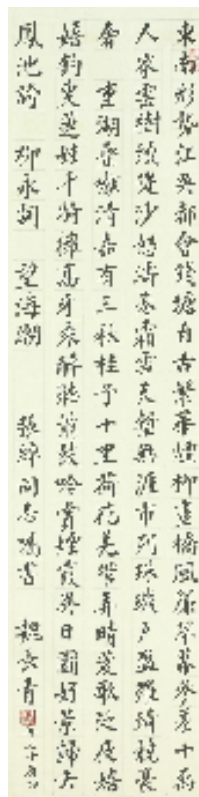 東南形勢江吳都會錢塘自古繁華煙柳畫橋風簾翠幕參差十萬
人家雲樹繞堤沙怒濤卷霜雪天塹無涯市列珠璣戶盈羅綺競豪
奢 重湖疊巘清嘉有三秋桂子十里荷花羌管弄晴菱歌泛夜嬉
嬉釣叟蓮娃千騎擁高牙乘醉聽簫鼓吟賞煙霞異日圖好景歸去
鳳池誇 柳永詞 望海潮 張 同志囑書 魏長青